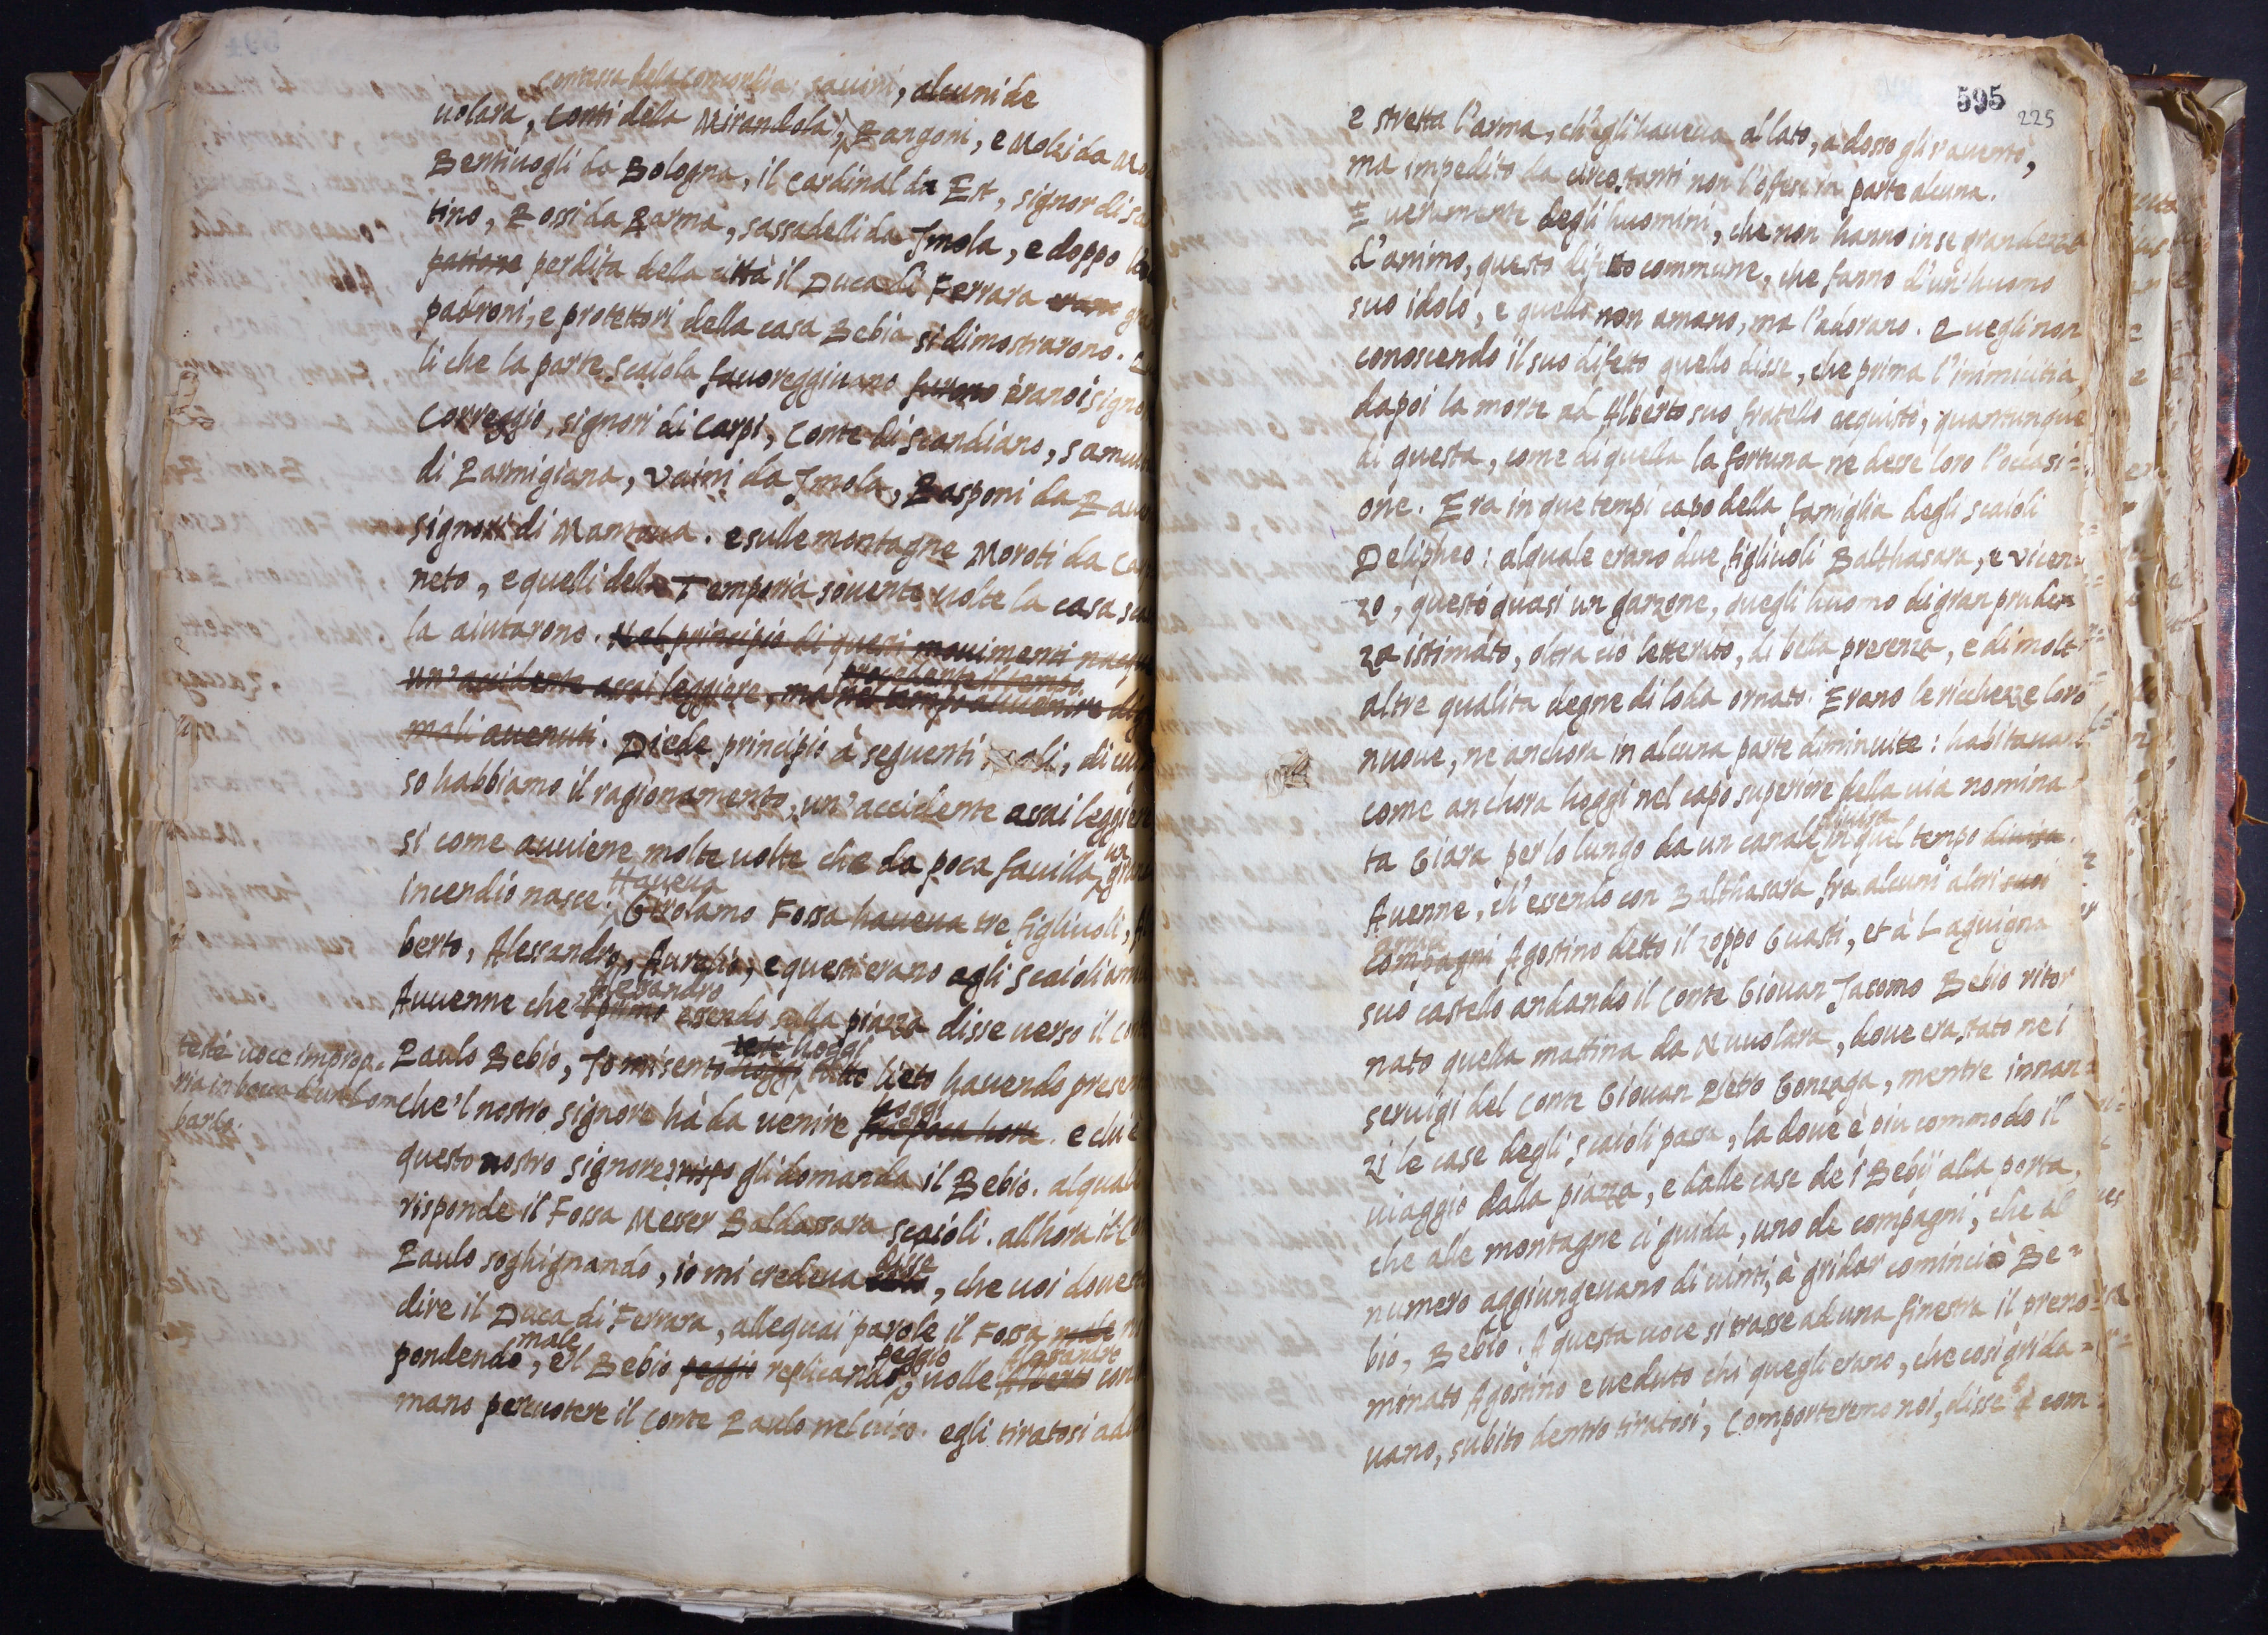 contessa della Concordia, savini, alcuni de
uolara, Conti della Mirandola, Rangoni, e Molzi da Mo
Bentiuogli da Bologna, il Cardinal da Est, signor di sca
tino, Rossi da Parma, sassadelli da Imola, e doppo
perdita della città il Duca di Ferrara erano
padroni, e protettori della casa Bebia si dimostrarono.
li che la parte scaiola fauoreggiuano furono erano i signo
Correggio, signori di Carpi, Conte di Scandiano,
di Parmigiana, Vaini da Imola, Rasponi da Raue
signori di Mantoua. e sulle montagne Moroti da Ca
neto, e quelli della Temporia souente uolte la casa sca
la aiutarono. Nel principio di questi mouimenti nacque
procedente il tempo
un'accidente assai leggiere, ma nel tempo auuenire di
mali auenuti. Diede principio à seguenti mali, di cui
so habbiamo il ragionamento, un'accidente assai leggiere
si come auuiene molte uolte che da poca fauilla un gran
Haueua
incendio nasce. Girolamo Fossa haueua tre figliuoli, Al
berto, Alessandro, Aurelio, e questi erano agli Scaioli ami
Alessandro
Auuenne che il primo essendo sulla piazza disse uerso il con
testè hoggi
Paulo Bebio, Io mi sento hoggi tutto lieto hauendo presen
testè uoce impropria in bocca d'un Lombardo.
hoggi
che'l nostro signore hà da uenire fra poca hora. e chi è
questo nostro signore? rispo gli domanda il Bebio. al quale
risponde il Fossa Messer Baldassara Scaioli. allhora il Co
disse
Paulo soghignando, io mi credeua, che uoi doueste
dire il Duca di Ferrara, alle quai parole il Fossa male
male peggio Alessandro
pondendo, e'l Bebio peggio replicando, uolle Alberto con
mano percuotere il Conte Paulo nel uiso. egli tiratosi adie
595
225
e stretta l'arma, ch'egli haueua al lato, a dosso gli s'auentò,
ma impedito da circostanti non l'offese in parte alcuna.
E ueramente degli huomini, che non hanno in se grandezza
d'animo, questo difetto commune, che fanno d'un'huomo
suo idolo, e quello non amano, ma l'adorano. Quegli non
conoscendo il suo difetto quello disse, che prima l'inimicitia,
dapoi la morte ad Alberto suo fratello acquistò, quantunque
di questa, come di quella la fortuna ne desse loro l'occasi=
one. Era in que tempi capo della famiglia degli Scaioli
Delipheo: al quale erano due figliuoli Balthasara, e Vicen=
zo, questo quasi un garzone, quegli huomo di gran pruden
za istimato, oltra ciò letterato, di bella presenza, e di molt
altre qualita degne di loda ornato. Erano le ricchezze loro
nuoue, ne anchora in alcuna parte diminuite: habitauan
come anchora hoggi nel capo superiore della uia nomina
diuisa
ta Giara per lo lungo da un canale in quel tempo diuisa.
Auenne, ch'essendo con Balthasara fra alcuni altri suoi
compagni Agostino detto il zoppo Guasti, et à Laguigna
suo castello andando il Conte Giouan Jacomo Bebio ritor
nato quella mattina da Nuuolara, doue era stato ne i
seruigi del Conte Giouan Pietro Gonzaga, mentre innan=
zi le case degli Scaioli passa, la doue è piu commodo il
uiaggio dalla piazza, e dalle case de i Bebij alla porta,
che alle montagne ci guida, uno de compagni, che al
numero aggiungeuano di uinti, à gridar cominciò Be=
bio, Bebio. A questa uoce si trasse ad una finestra il preno=
minato Agostino e ueduto chi quegli erano, che cosi grida=
uano, subito dentro tiratosi, Comporteremo noi, disse à com=